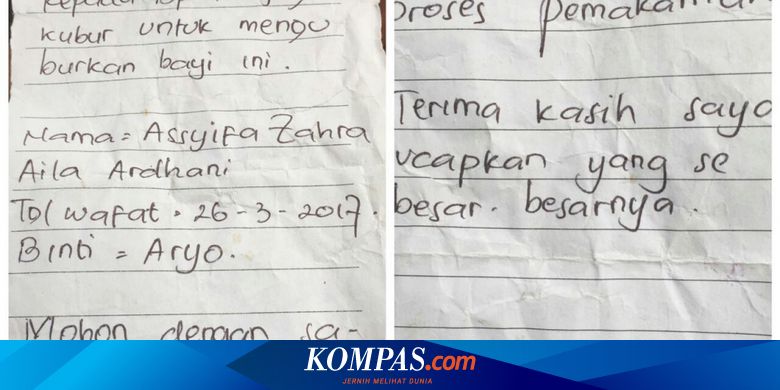 kubur untuk mengu
burkan bayi ini.
Nama = Assyifa Zahra
Aila Ardhani
Tgl wafat. 26-3-2017.
Binti = Aryo.
Mohon dengan sa-
proses pemakaman
Terima kasih saya
ucapkan yang se
besar. besarnya.
KOMPAS.com
JERNIH MELIHAT DUNIA